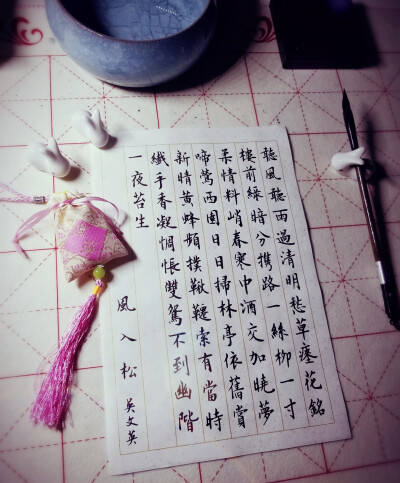 聽風聽雨過清明愁草瘞花銘
樓前綠暗分携路一絲柳一寸
柔情料峭春寒中酒交加曉夢
啼鶯西園日日掃林亭依舊賞
新晴黃蜂頻撲鞦韆索有當時
纖手香凝惆悵雙鴛不到幽階
一夜苔生
風入松 吳文英